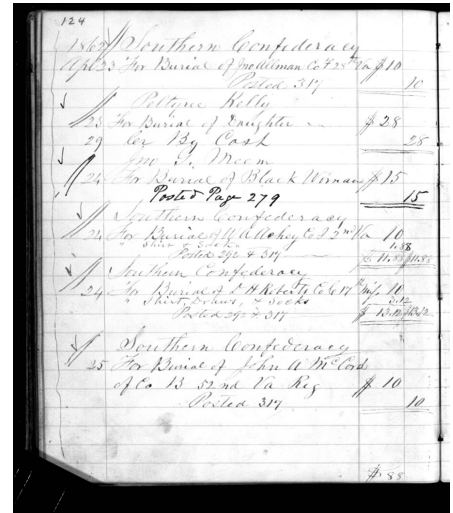 124
1862 Southern Confederacy
Apl 23 For Burial of Co F 28th Va $ 10
Posted 317 10
Kelly
23 For Burial of Daughter $ 28
29 Cr By Cash 28
Jno S. Meem
24 For Burial of Black Woman $ 15
Posted Page 279 15
Southern Confederacy
24 For Burial of Co I 2nd Va 10
" Shirt & Socks 1.88
Posted 292 & 317 $ 11.88 $11.88
Southern Confederacy
24 For Burial of Roberts Co C 17th Miss 10
" Shirt, Drawers, & Socks 3.12
Posted 292 & 317 $ 13.12 $13.12
Southern Confederacy
25 For Burial of John A McCord
of Co B 52nd Va Reg $ 10
Posted 317 10
$ 88